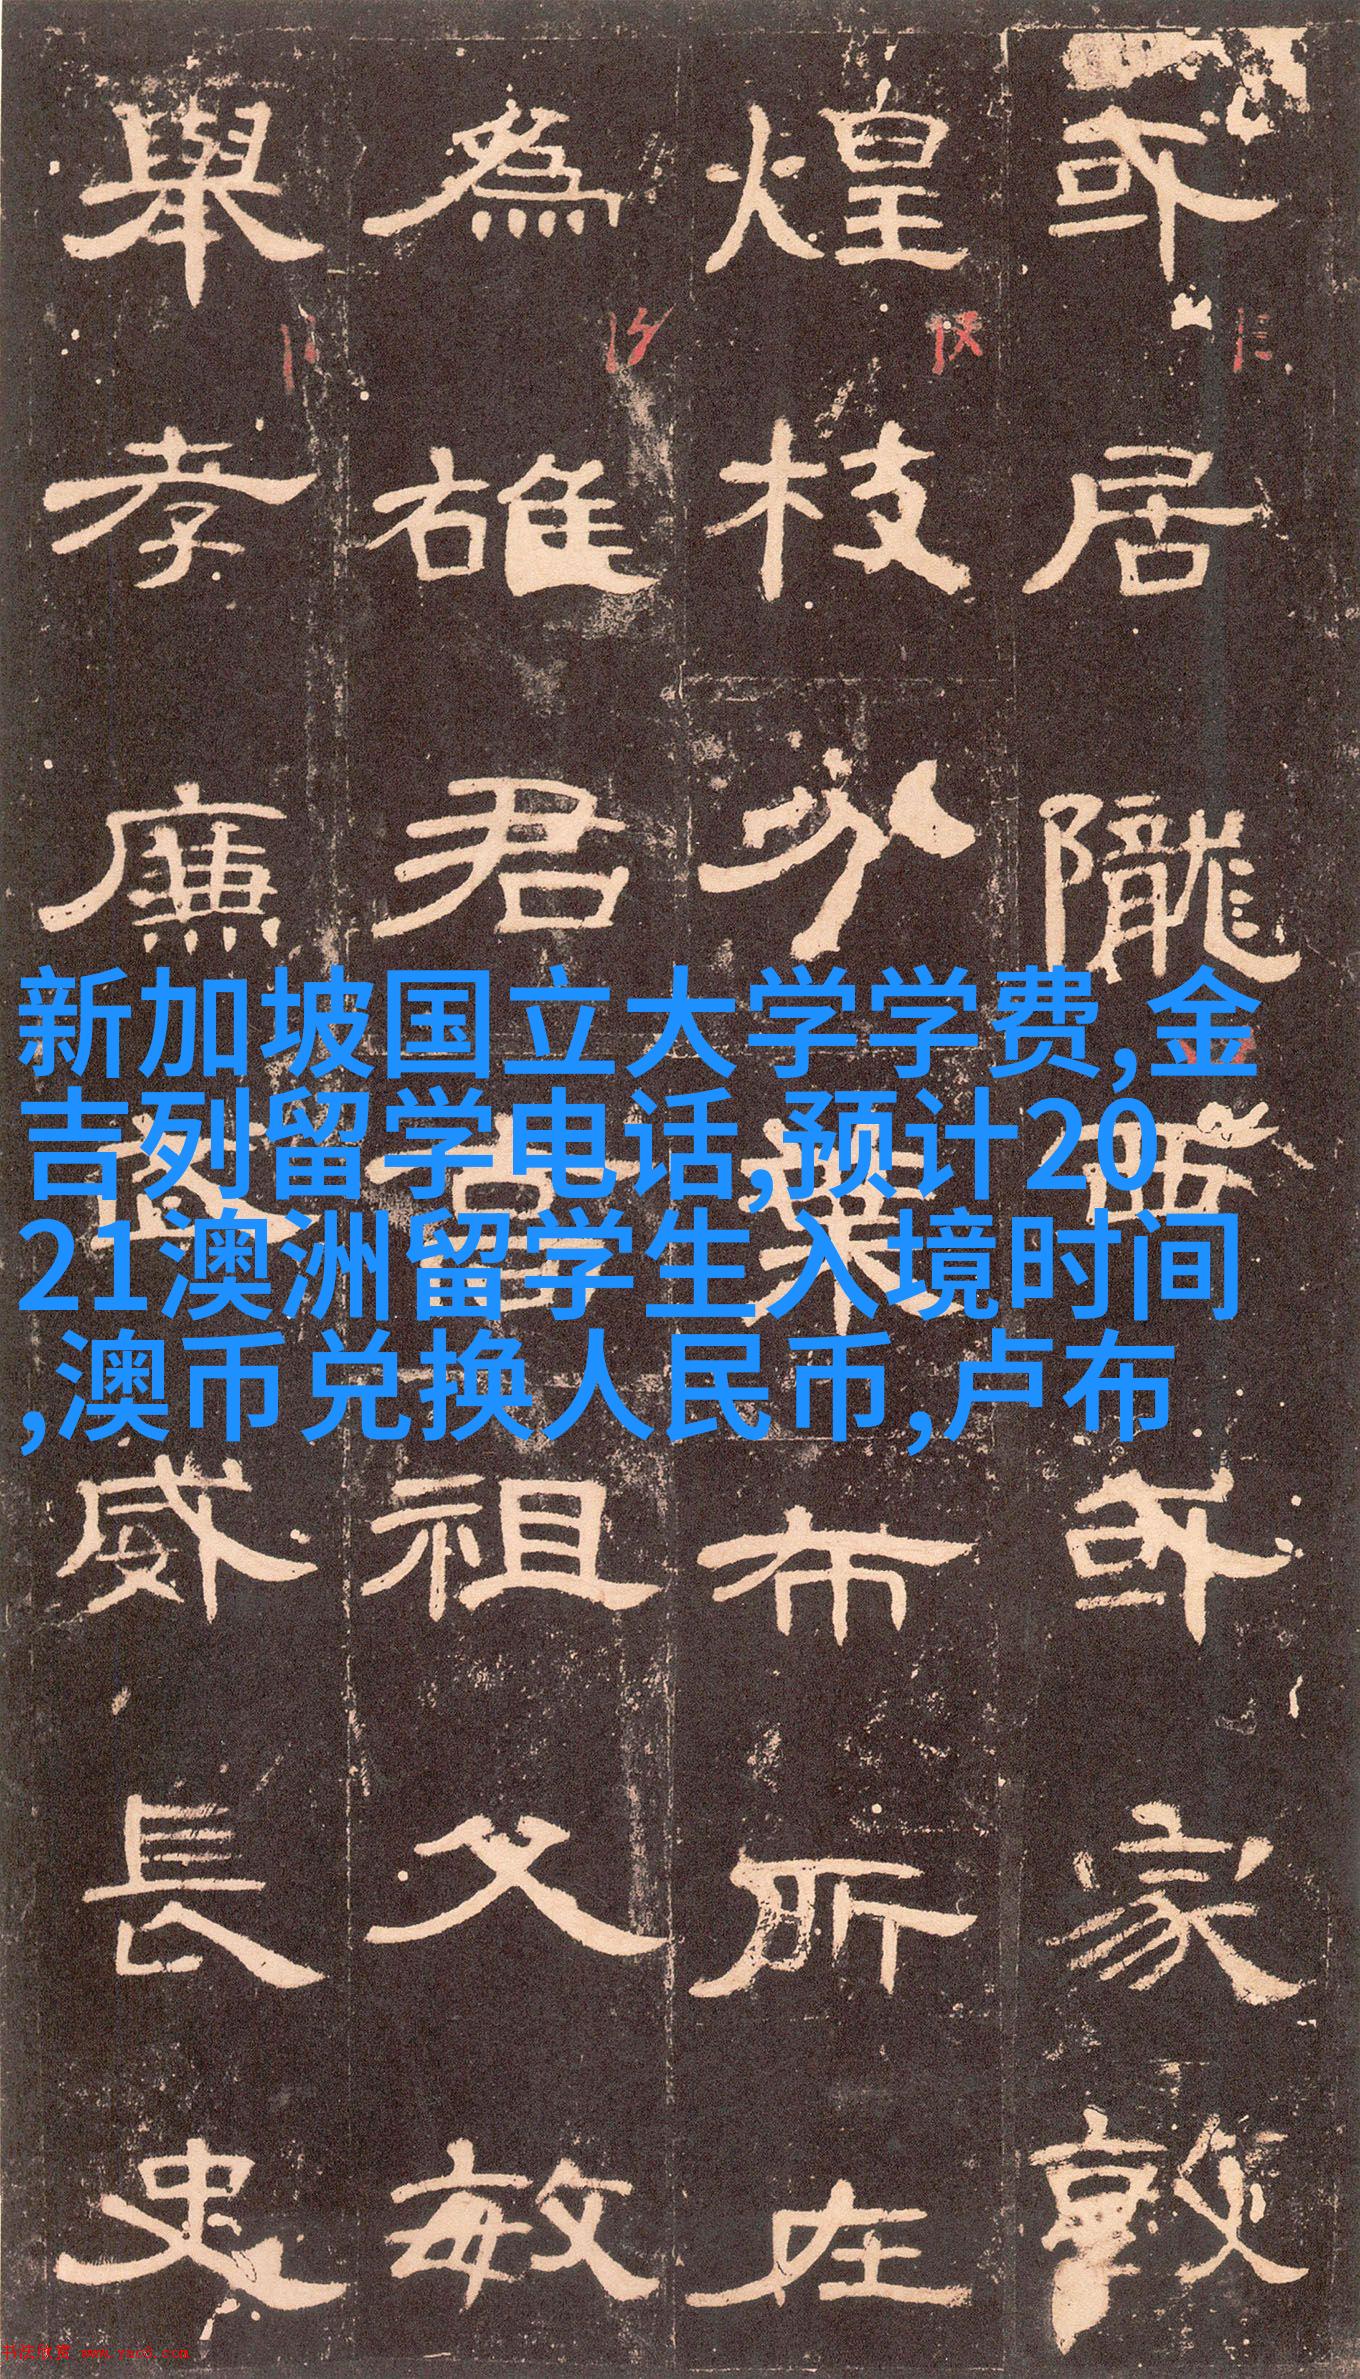 或居隴西或家敦
煌枝分葉布所在
為雄君高祖父敏
舉孝廉武威長史
新加坡国立大学学费,金
吉列留学电话,预计20
21澳洲留学生入境时间
,澳币兑换人民币,卢布
书法欣赏 www.yac8.com